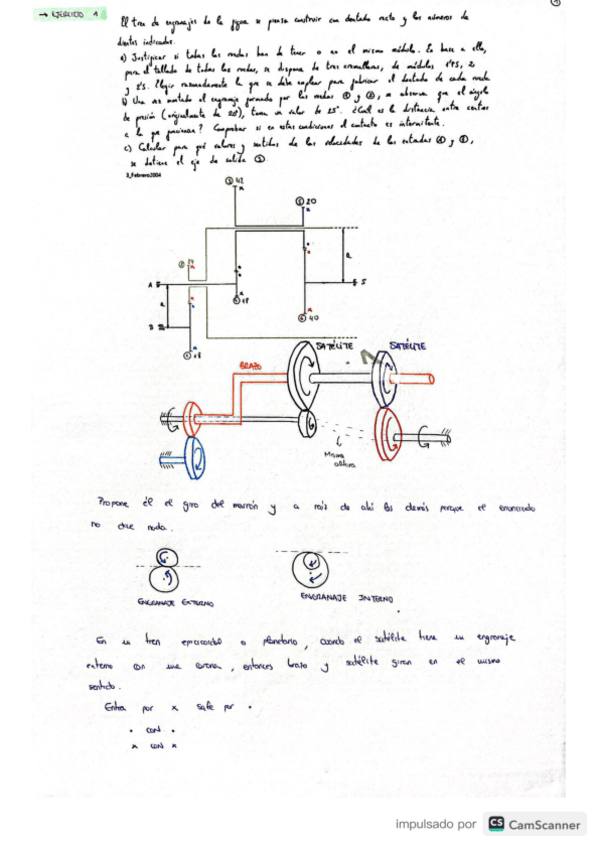 → EJERCICIO 1
①
El tren de engranajes de la figura se piensa construir con dentado recto y los números de
dientes indicados.
a) Justificar si todas las ruedas han de tener o no el mismo módulo. En base a ello,
para el tallado de todas las ruedas, se dispone de tres cremalleras, de módulos 1'75, 2
y 2'5. Elegir razonadamente la que se debe emplear para fabricar el dentado de cada rueda
b) Una vez montado el engranaje formado por las ruedas ① y ②, se observa que el ángulo
de presión (originalmente de 20º), toma un valor de 25º. ¿Cuál es la distancia entre centros
a la que funcionan? Comprobar si en estas condiciones el contacto es intermitente.
c) Calcular para qué valores y sentidos de las velocidades de las entradas Ⓐ y Ⓑ,
se detiene el eje de salida Ⓢ.
3_Febrero2004
42
x
20
x
②
A
S
a
18
a
B
40
①
18
SATÉLITE
SATÉLITE
BRAZO
Misma
Propone él el giro del marrón y a raíz de ahí los demás porque el enunciado
no dice nada.
ENGRANAJE EXTERNO
ENGRANAJE INTERNO
En un tren epicicloidal o planetario, cuando el satélite tiene un engranaje
externo con una corona, entonces brazo y satélite giran en el mismo
sentido.
Entra por x sale por •
• CON •
x CON x
impulsado por CS CamScanner